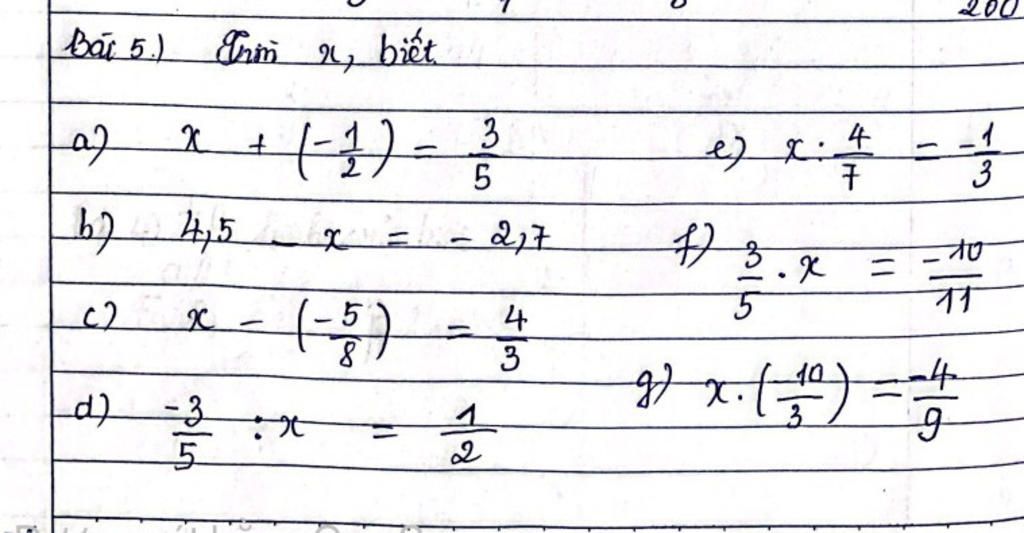 200
Bài 5.) Tìm x, biết.
a) x + (-1/2) = 3/5
e) x : 4/7 = -1/3
b) 4,5 - x = - 2,7
f) 3/5 . x = -10/11
c) x - (-5/8) = 4/3
g) x . (-10/3) = -4/9
d) -3/5 : x = 1/2